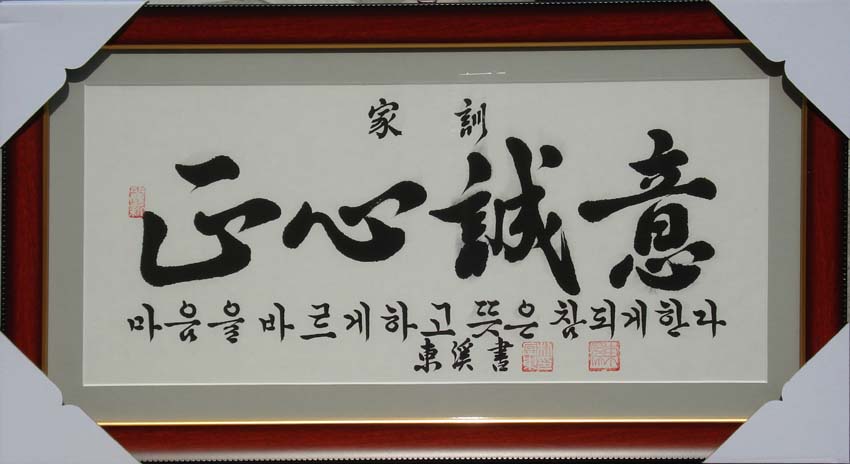 家訓
正心誠意
마음을 바르게하고 뜻은 참되게한라
東溪書